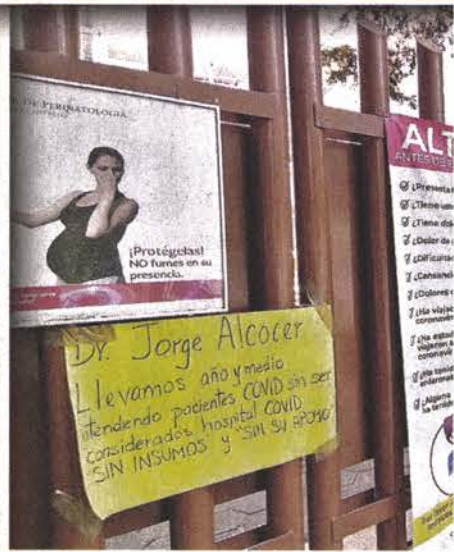 DE PERINATOLOGÍA
¡Protégelas!
NO fumes en su
presencia.
Dr. Jorge Alcocer
Llevamos año y medio
tendiendo pacientes COVID sin ser
considerados hospital COVID
SIN INSUMOS y "SIN SU APOYO"
ALT
ANTES DE
¿Presenta
¿Tiene
¿Tiene
¿Dolor de
¿Dificultad
¿Cansancio
¿Dolores
¿Ha viajado
coronavirus
¿Ha
viajaron
coronavir
¿Ha tenido
¿Alguna
ha